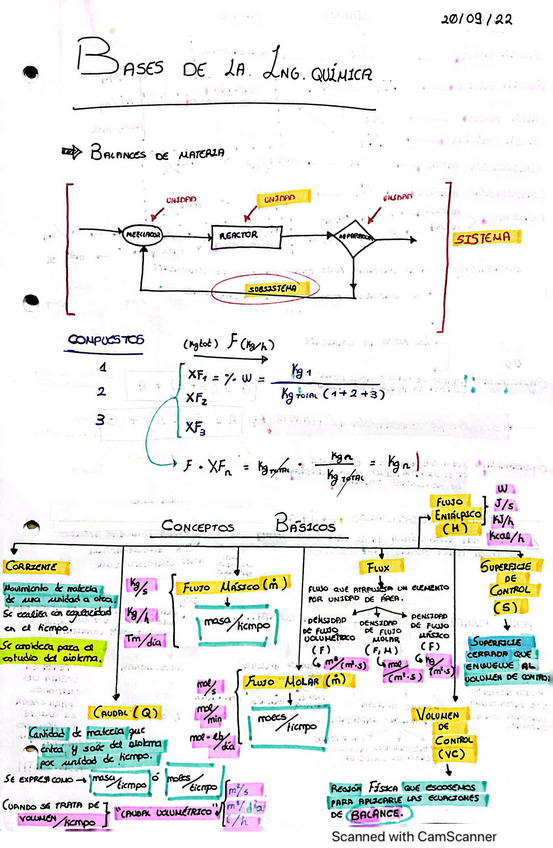 20/09/22
BASES DE LA ING. QUÍMICA
⇒ BALANCES DE MATERIA
UNIDAD UNIDAD UNIDAD
MEZCLADOR REACTOR SEPARADOR
SISTEMA
SUBSISTEMA
COMPUESTOS
1
2
3
(Kgtot) F (Kg/h)
XF1 = % W = Kg 1 / Kg TOTAL (1+2+3)
XF2
XF3
F · XFn = Kg TOTAL · Kg n / Kg TOTAL = Kg n!
CONCEPTOS BÁSICOS
FLUJO
ENTÁLPICO
(H)
W
J/s
KJ/h
Kcal/h
CORRIENTE
Movimiento de materia
de una unidad a otra.
Se realiza con capacidad
en el tiempo.
Se considera para el
estudio del sistema.
Kg/s
Kg/h
Tm/día
FLUJO MÁSICO (ṁ)
masa/tiempo
FLUX
FLUJO QUE ATRAVIESA UN ELEMENTO
POR UNIDAD DE ÁREA.
DENSIDAD
DE FLUJO
VOLUMÉTRICO
(F)
m³/(m²·s)
DENSIDAD
DE FLUJO
MOLAR
(F, M)
mol/(m²·s)
DENSIDAD
DE FLUJO
MÁSICO
(F)
kg/(m²·s)
SUPERFICIE
DE
CONTROL
(S)
SUPERFICIE
CERRADA QUE
ENVUELVE AL
VOLUMEN DE CONTROL
mol/s
mol/min
mol-lb/día
FLUJO MOLAR (ṁ)
moles/tiempo
CAUDAL (Q)
Cantidad de materia que
entra y sale del sistema
por unidad de tiempo.
SE EXPRESA COMO → masa/tiempo ó moles/tiempo
CUANDO SE TRATA DE
VOLUMEN/tiempo
"CAUDAL VOLUMÉTRICO"
m³/s
m³/día
L/h
VOLUMEN
DE
CONTROL
(VC)
REGIÓN FÍSICA QUE ESCOGEMOS
PARA APLICARLE LAS ECUACIONES
DE BALANCE.
Scanned with CamScanner